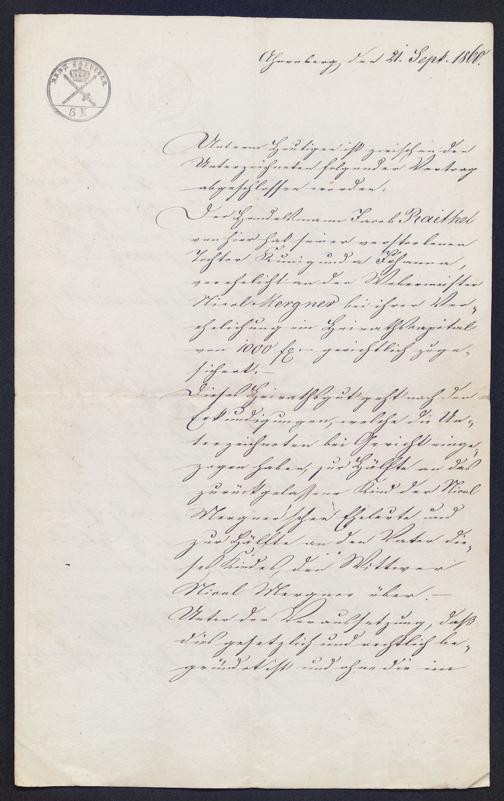 SECHS KREUZER
6 K
Ahornberg, den 21. Sept. 1860.
Unterm Heutigen ist zwischen den
Unterzeichneten folgender Vertrag
abgeschlossen worden:
Der Handelsmann Jacob Raithel
von hier hat seiner verstorbenen
Tochter Kunigunda Johanna,
verehelicht an den Webermeister
Nicol Mergner bei ihrer Ver-
ehelichung ein Heirathskapital
von 1000 fl. gerichtlich zuge-
sichert.—
Dieses Heirathsgut geht nach den
Erkundigungen, welche die Un-
terzeichneten bei Gericht einge-
zogen haben, zur Hälfte an das
zurückgelassene Kind der Nicol
Mergner'schen Eheleute und
zur Hälfte an den Vater die-
ses Kindes, den Wittwer
Nicol Mergner über.—
Unter der Voraussetzung, daß
dies gesetzlich und rechtlich be-
gründet ist und ohne die im